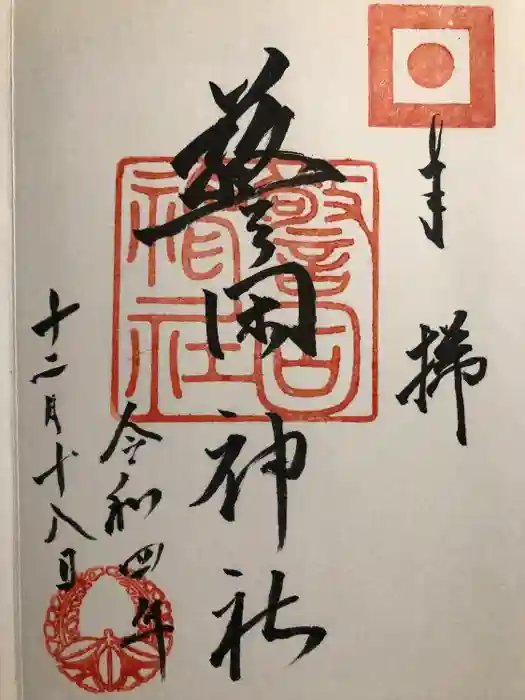 奉拝
警固神社
令和四年
十二月十八日
警固
神社